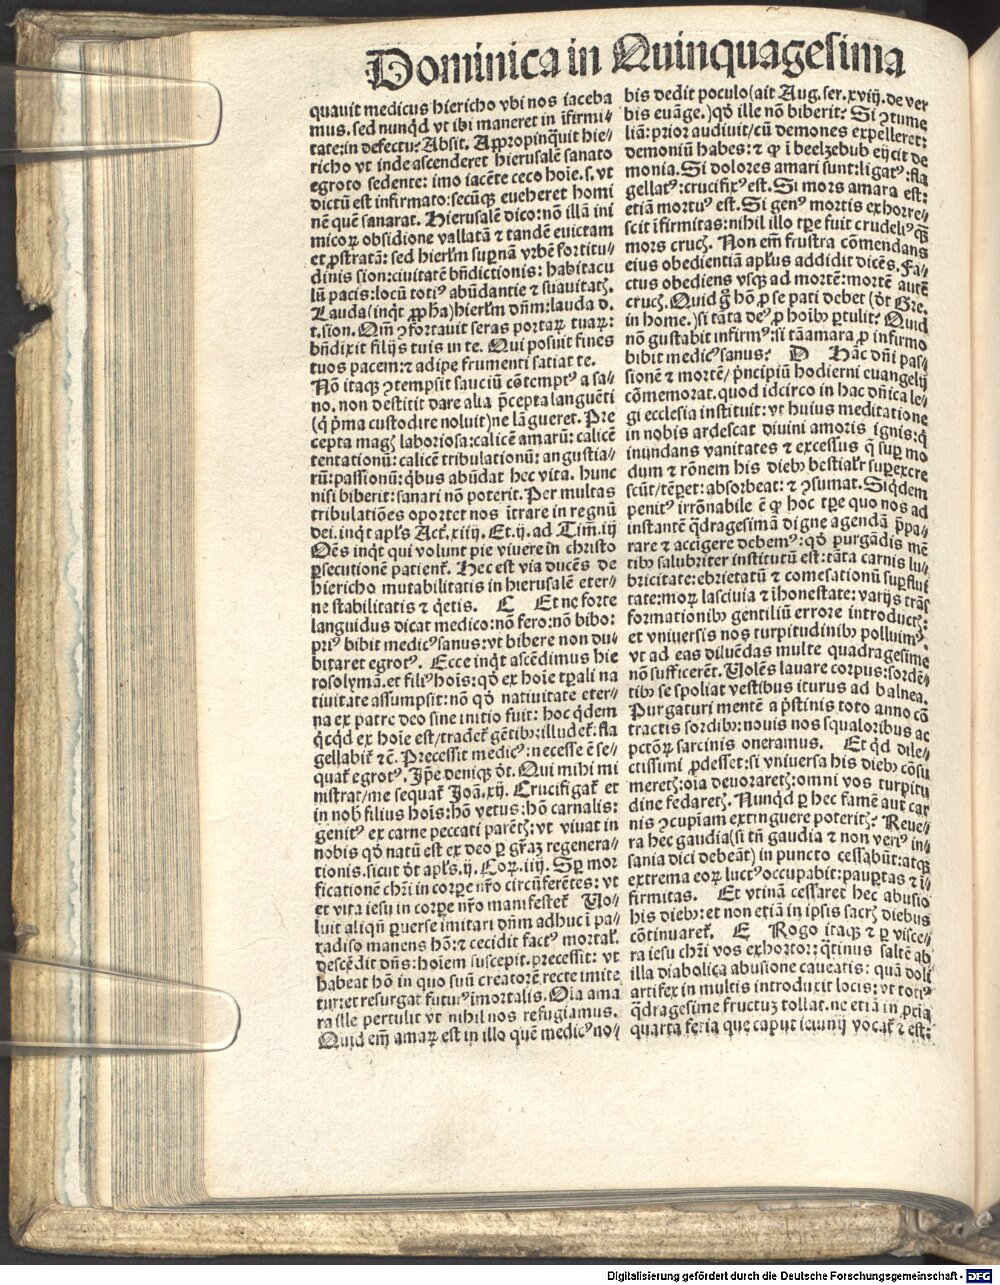 Dominica in Quinquagesima
quauit medicus hiericho vbi nos iaceba
mus. sed nunqd vt ibi maneret in īfirmi⸗
tate: in defectu? Absit. Appropinq̄uit hie⸗
richo vt inde ascenderet hierusalē sanato
egroto sedente: imo iacēte ceco hoīe. s. vt
dictū est infirmato: secūqꝫ eueheret homi
nē quē sanarat. Hierusalē dico: nō illā ini
micoꝝ obsidione vallatā ⁊ tandē euictam
et ꝓstratā: sed hierl̄m supnā vrbē fortitu⸗
dinis sion: ciuitatē bn̄dictionis: habitacu
lū pacis: locū totiꝰ abūdantie ⁊ suauitatꝭ.
Lauda (inqͭ ꝓpha) hierl̄m dn̄m: lauda d.
t. sion. Qm̄ ꝯfortauit seras portaꝝ tuaꝝ:
bn̄dixit filijs tuis in te. Qui posuit fines
tuos pacem: ⁊ adipe frumenti satiat te.
Nō itaqꝫ ꝯtempsit sauciū cōtemptꝰ a sa⸗
no. non destitit dare alia p̄cepta languēti
(q̇ p̄ma custodire noluit) ne lāgueret. Pre
cepta magꝭ laboriosa: calicē amarū: calicē
tentationū: calicē tribulationū: angustia⸗
rū: passionū: q̇bus abūdat hec vita. hunc
nisi biberit: sanari nō poterit. Per multas
tribulatiōes oportet nos ītrare in regnū
dei. inqͭ apl̄s Act. xiiij. Et. ij. ad Tim̄. iij
Oēs inqͭ qui volunt pie viuere in christo
ꝑsecutionē patient᷑. Hec est via ducēs de
hiericho mutabilitatis in hierusalē eter⸗
ne stabilitatis ⁊ q̇etis. C Et ne forte
languidus dicat medico: nō fero: nō bibo:
priꝰ bibit medicꝰ sanus: vt bibere non du⸗
bitaret egrotꝰ. Ecce inqͭ ascēdimus hie
rosolymā. et filiꝰ hoīs: qḋ ex hoīe tꝑali na
tiuitate assumpsit: nō qḋ natiuitate eter⸗
na ex patre deo sine initio fuit: hoc q̇dem
q̇cqd ex hoīe est / tradet᷑ gētibꝫ: illudet᷑: fla
gellabit᷑ ⁊c̄. Precessit medicꝰ: necesse ē se⸗
quat᷑ egrotꝰ. Ip̄e deniqꝫ dt̄. Qui mihi mi
nistrat / me sequat᷑ Joā. xij. Crucifigat᷑ et
in nob̄ filius hoīs: hō vetus: hō carnalis:
genitꝰ ex carne peccati parētꝭ: vt viuat in
nobis qḋ natū est ex deo ꝑ gr̄aꝫ regenera⸗
tionis. sicut dt̄ apl̄s. ij. Coꝝ. iiij. Sꝑ mor
tificationē chr̄i in corꝑe nr̄o circūferētes: vt
et vita iesu in corꝑe nr̄o manifestet᷑ Uo⸗
luit aliqn̄ ꝑuerse imitari dn̄m adhuc ī pa⸗
radiso manens hō: ⁊ cecidit factꝰ mortal᷑.
descēdit dn̄s: hoīem suscepit. precessit: vt
habeat hō in quo suū creatorē recte imite
tur: et resurgat futurꝰ īmortalis. Oīa ama
ra ille pertulit vt nihil nos refugiamus.
Quid em̄ amaꝝ est in illo quē medicꝰ no⸗
bis dedit poculo (ait Aug. ser. xviij. de ver
bis euāge.) qḋ ille nō biberit? Si ꝯtume
liā: prior audiuit / cū demones expelleret:
demoniū habes: ⁊ ꝙ ī beelzebub eijcit de
monia. Si dolores amari sunt: ligatꝰ: fla
gellatꝰ: crucifixꝰ est. Si mors amara est:
etiā mortuꝰ est. Si genꝰ mortis exhorre⸗
scit īfirmitas: nihil illo tꝑe fuit crudeliꝰ qꝫ̄
mors crucꝭ. Non em̄ frustra cōmendans
eius obedientiā apl̄us addidit dicēs. Fa⸗
ctus obediens vsqꝫ ad mortē: mortē autē
crucꝭ. Quid gͦ hō ꝓ se pati debet (dt̄ Gre.
in home.) si tāta deꝰ ꝓ hoībꝫ ꝑtulit? Quid
nō gustabit infirmꝰ: si tā amara ꝓ infirmo
bibit medicꝰ sanus? D Hāc dn̄i pas⸗
sionē ⁊ mortē / pͥncipiū hodierni euangelij
cōmemorat. quod idcirco in hac dn̄ica le⸗
gi ecclesia instituit: vt huius meditatione
in nobis ardescat diuini amoris ignis: q̇
inundans vanitates ⁊ excessus q̇ suꝑ mo
dum ⁊ rōnem his diebꝫ bestial᷑r suꝑexcre
scūt / tēꝑet: absorbeat: ⁊ ꝯsumat. Siq̇dem
penitꝰ irrōnabile ē ꝙ hoc tꝑe quo nos ad
instantē q̇dragesimā digne agendā p̄pa⸗
rare ⁊ accigere debemꝰ: qḋ purgādis mē
tibꝫ salubriter institutū est: tāta carnis lu⸗
bricitate: ebrietatū ⁊ comesationū suꝑflui
tate: moꝝ lasciuia ⁊ īhonestate: varijs trās
formationibꝫ gentiliū errore introductꝭ:
et vniuersis nos turpitudinibꝫ polluimꝰ:
vt ad eas diluēdas multe quadragesime
nō sufficerēt. Uolēs lauare corpus: sordē⸗
tibꝫ se spoliat vestibus iturus ad balnea.
Purgaturi mentē a pͥstinis toto anno cō
tractis sordibꝫ: nouis nos squaloribus ac
pctōꝝ sarcinis oneramus. Et qd dile⸗
ctissimi ꝓdesset: si vniuersa his diebꝫ cōsu
meretꝭ: oīa deuoraretꝭ: omni vos turpitu
dine fedaretꝭ. Nunqd ꝑ hec famē aut car
nis ꝯcupīam extinguere poteritꝭ? Reue⸗
ra hec gaudia (si tn̄ gaudia ⁊ non verꝰ in⸗
sania dici debeāt) in puncto cessabūt: atqꝫ
extrema eoꝝ luctꝰ occupabit: pauꝑtas ⁊ ī⸗
firmitas. Et vtinā cessaret hec abusio
his diebꝫ: et non etiā in ipsis sacrꝭ diebus
cōtinuaret᷑. E Rogo itaqꝫ ⁊ ꝑ visce⸗
ra iesu chr̄i vos exhortor: q̇tinus saltē ab
illa diabolica abusione caueatis: quā doli
artifex in multis introduxit locis: vt totiꝰ
q̇dragesime fructuꝫ tollat. ne etiā in ꝓria
quarta feria que caput ieiunij vocat᷑ ⁊ est:
Digitalisierung gefördert durch die Deutsche Forschungsgemeinschaft - DFG